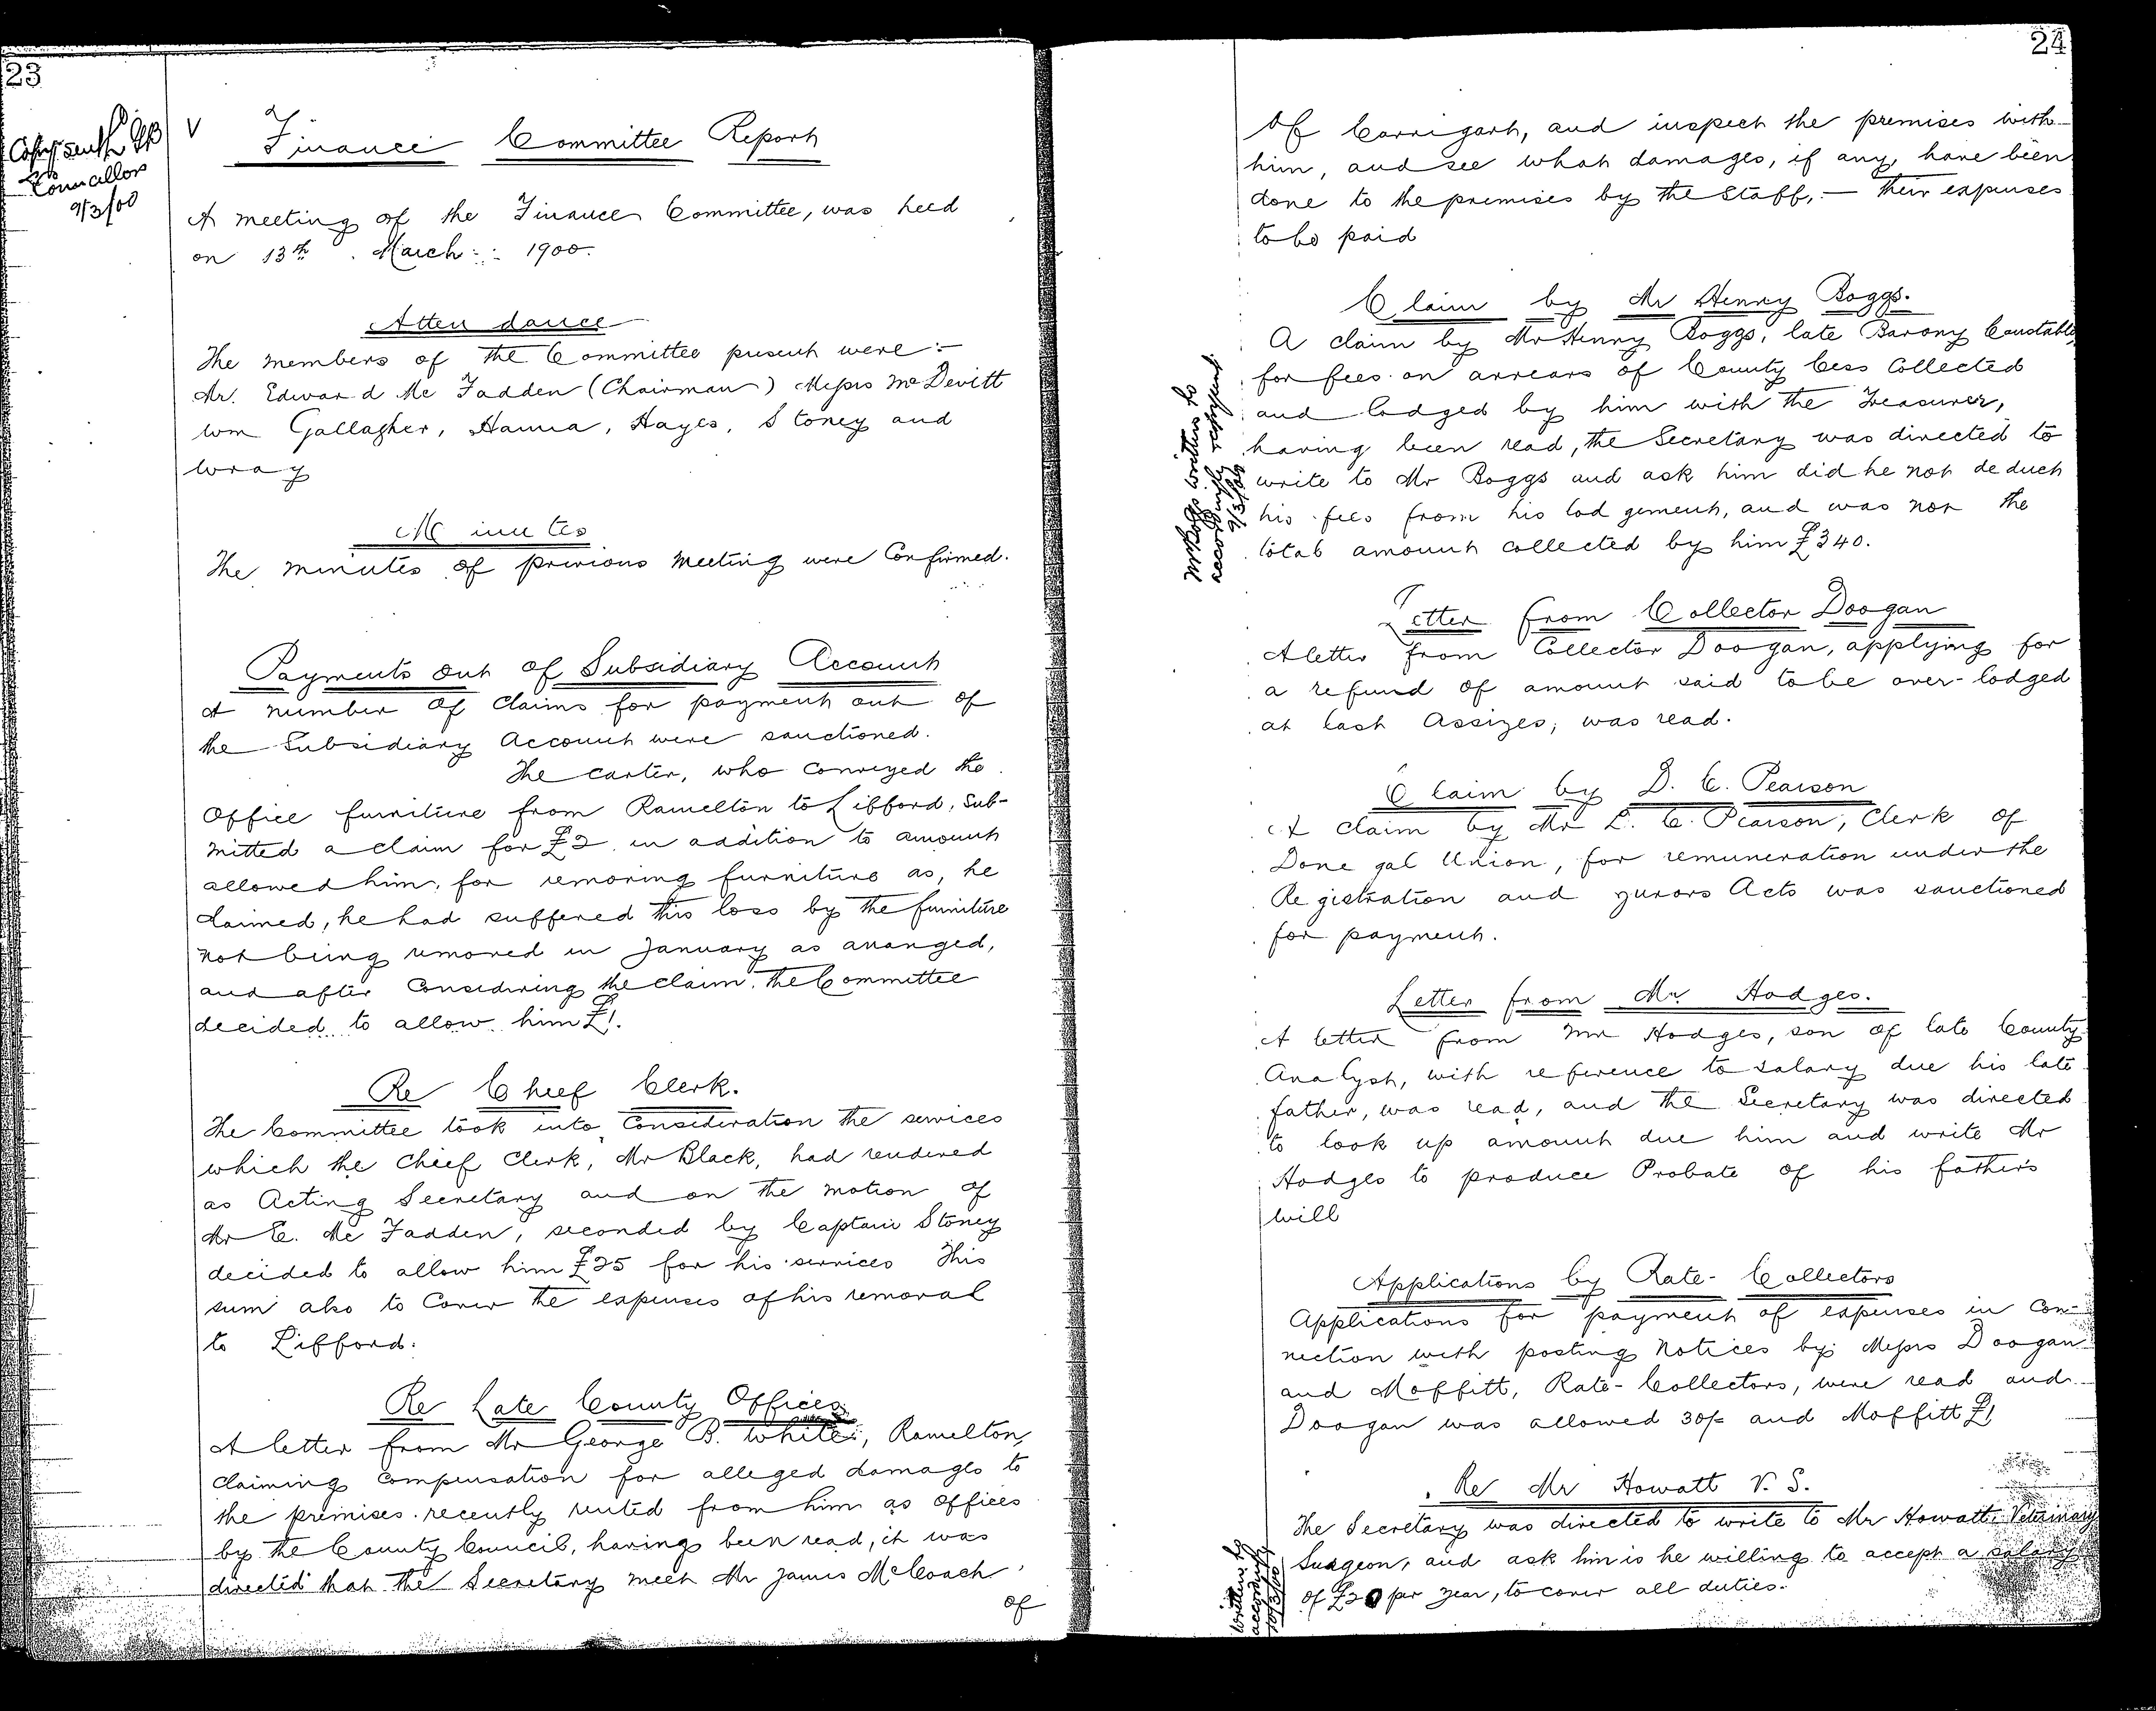 23
Councillors
9/3/00
V Finance Committee Report
A meeting of the Finance Committee, was held
on 13th March :: 1900.
Attendance
The members of the Committee present were:-
Mr. Edward Mc Fadden (Chairman) Messrs McDevitt
Wm Gallagher, Hanna, Hayes, Stoney and
Wray
Minutes
The minutes of previous meeting were Confirmed.
Payments out of Subsidiary Account
A number of claims for payment out of
the Subsidiary Account were sanctioned.
The carter, who conveyed the
Office furniture from Ramelton to Lifford, Sub-
mitted a claim for £2 in addition to amount
allowed him, for removing furniture as, he
claimed, he had suffered this loss by the furniture
not being removed in January as arranged,
and after Considering the claim, the Committee
decided to allow him £1.
Re Chief Clerk.
The Committee took into Consideration the services
which the Chief Clerk, Mr Black, had rendered
as Acting Secretary and on the motion of
Mr E. Mc Fadden, seconded by Captain Stoney
decided to allow him £25 for his services This
sum also to Cover the expenses of his removal
to Lifford.
Re Late County Offices
A letter from Mr George B. White, Ramelton,
Claiming Compensation for alleged damages to
the premises recently rented from him as Offices
by the County Council, having been read, it was
directed that the Secretary meet Mr James McCoach
of
24
of Carrigart, and inspect the premises with
him, and see what damages, if any, have been
done to the premises by the Staff, — their expenses
to be paid
Claim by Mr Henry Boggs.
A claim by Mr Henry Boggs, late Barony Constable,
for fees on arrears of County Cess Collected
and lodged by him with the Treasurer,
having been read, the Secretary was directed to
write to Mr Boggs and ask him did he not deduct
his fees from his lodgement, and was not the
total amount collected by him £340.
Mr Boggs written to
accordingly
9/3/00
Letter from Collector Doogan
A letter from Collector Doogan, applying for
a refund of amount said to be over-lodged
at last Assizes, was read.
Claim by D. C. Pearson
A claim by Mr D. C. Pearson, Clerk of
Donegal Union, for remuneration under the
Registration and Jurors Acts was sanctioned
for payment.
Letter from Mr Hodges.
A letter from Mr Hodges, son of late County
Analyst, with reference to salary due his late
father, was read, and the Secretary was directed
to look up amount due him and write Mr
Hodges to produce Probate of his father's
will
Applications by Rate-Collectors
Applications for payment of expenses in Con-
nection with posting Notices by Messrs Doogan
and Moffitt, Rate-Collectors, were read and
Doogan was allowed 30/- and Moffitt £1
Re Mr Howatt V. S.
The Secretary was directed to write to Mr Howatt, Veterinary
Surgeon, and ask him is he willing to accept a salary
of £20 per year, to cover all duties.
Written to
accordingly